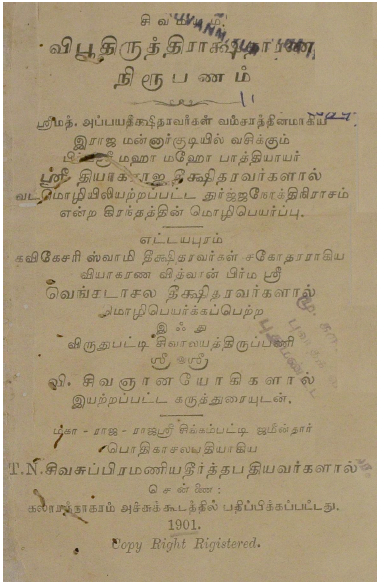 சிவமயம்.
விபூதிருத்திராக்ஷதாரண
நிரூபணம்
ஸ்ரீமத். அப்பயதீக்ஷிதரவர்கள் வம்சாத்தீனமாகிய
இராஜ மன்னார்குடியில் வசிக்கும்
ஸ்ரீ மஹா மஹோ பாத்தியாயர்
ஸ்ரீ தியாகராஜ தீக்ஷிதரவர்களால்
வடமொழியிலியற்றப்பட்ட துர்ஜ்ஜநோக்திநிராசம்
என்ற கிரந்தத்தின் மொழிபெயர்ப்பு.
எட்டயபுரம்
கவிகேசரி ஸ்வாமி தீக்ஷிதரவர்கள் சகோதரராகிய
வியாகரண வித்வான் பிர்ம ஸ்ரீ
வெங்கடாசல தீக்ஷிதரவர்களால்
மொழிபெயர்க்கப்பெற்ற
இஃது
விருதுபட்டி சிவாலயத்திருப்பணி
ஸ்ரீ
வி. சிவஞானயோகிகளால்
இயற்றப்பட்ட கருத்துரையுடன்.
மகா - ராஜ - ராஜஸ்ரீ சிங்கம்பட்டி ஜமீன்தார்
பொதிகாசலபதியாகிய
T.N.சிவசுப்பிரமணியதீர்த்தபதியவர்களால்
சென்னை:
கலாரத்நாகரம் அச்சுக்கூடத்தில் பதிப்பிக்கப்பட்டது.
1901.
Copy Right Rigistered.